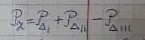 P_x = P_{Δ_I} + P_{Δ_{II}} - P_{Δ_{III}}